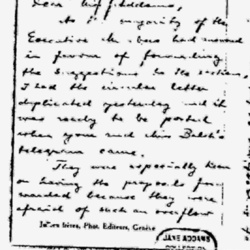 Dear Miss Addams,
As a majority of the
Executive members had moved
in favour of forwarding
the suggestions to the sections
I had the circular letter
duplicated yesterday and it
was ready to be posted
when your and Miss Balch's
telegrams came.
They were especially keen
on having the proposals for-
warded because they were
afraid of such an overflow
frères, Phot. Editeurs, Genève
JANE ADDAMS